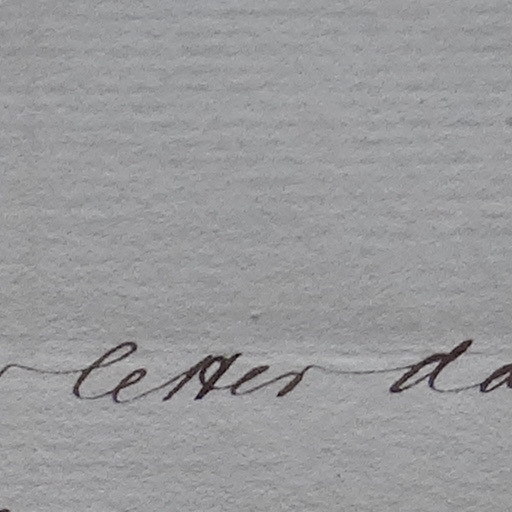 letter da